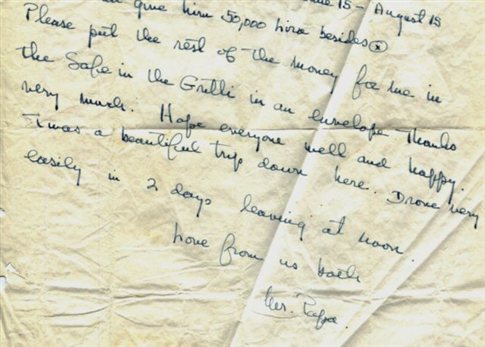 15 - August 15
give him 50,000 lira besides
Please put the rest of the money for me in
the Safe in the Gritti in an envelope Thanks
very much. Hope everyone well and happy.
It was a beautiful trip down here. Drove very
easily in 2 days leaving at noon.
Love from us both
Mr. Papa.